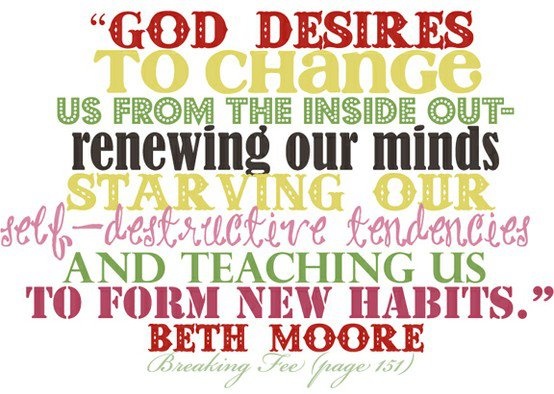 “GOD DESIRES
TO CHANGE
US FROM THE INSIDE OUT-
renewing our minds
STARVING OUR
self-destructive tendencies
AND TEACHING US
TO FORM NEW HABITS.”
BETH MOORE
Breaking Fee (page 151)